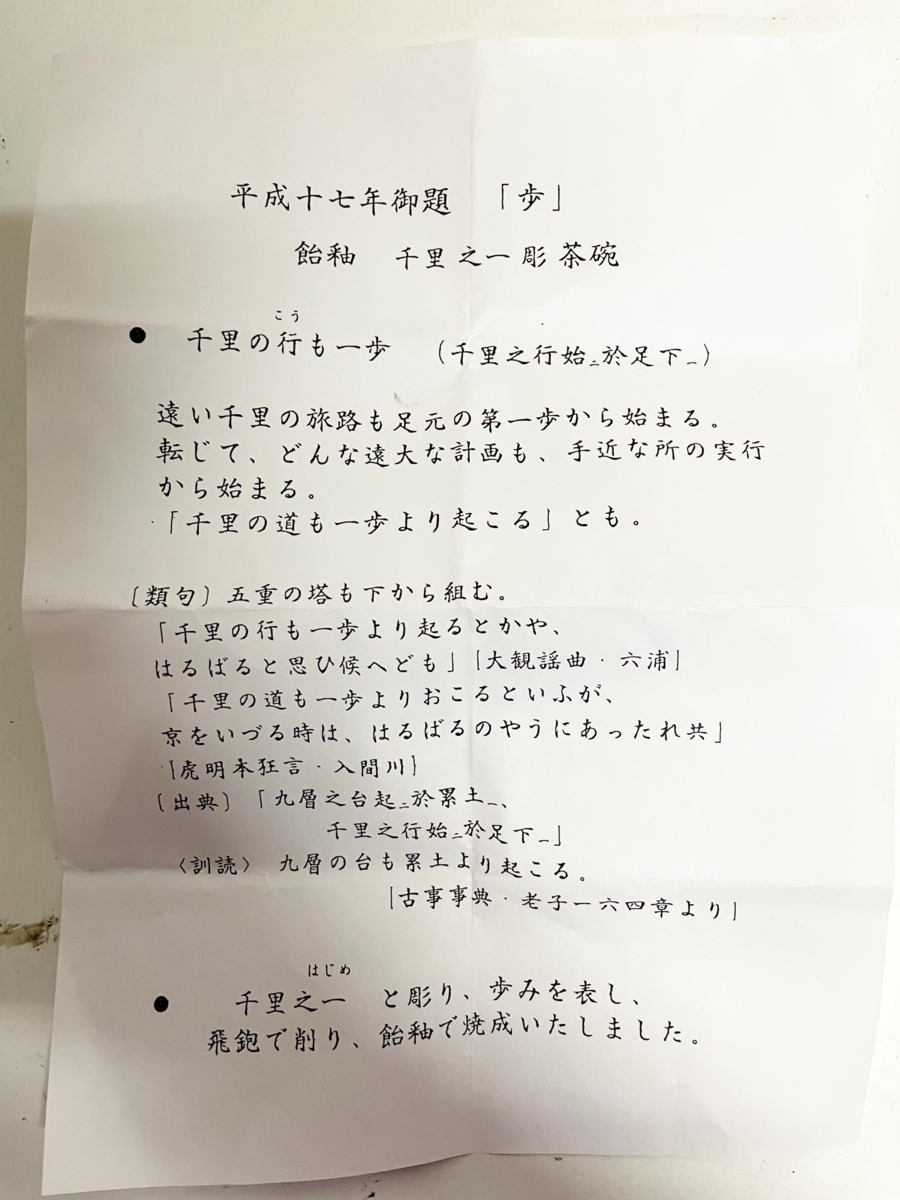 平成十七年御題 「歩」
飴釉 千里之一彫茶碗
こう
● 千里の行も一歩 （千里之行始ニ於足下一）
遠い千里の旅路も足元の第一歩から始まる。
転じて、どんな遠大な計画も、手近な所の実行
から始まる。
「千里の道も一歩より起こる」とも。
〔類句〕五重の塔も下から組む。
「千里の行も一歩より起るとかや、
はるばると思ひ候へども」［大観謡曲・六浦］
「千里の道も一歩よりおこるといふが、
京をいづる時は、はるばるのやうにあったれ共」
［虎明本狂言・入間川］
〔出典〕「九層之台起ニ於累土一、
千里之行始ニ於足下一」
〈訓読〉 九層の台も累土より起こる。
［古事事典・老子－六四章より］
はじめ
● 千里之一 と彫り、歩みを表し、
飛鉋で削り、飴釉で焼成いたしました。